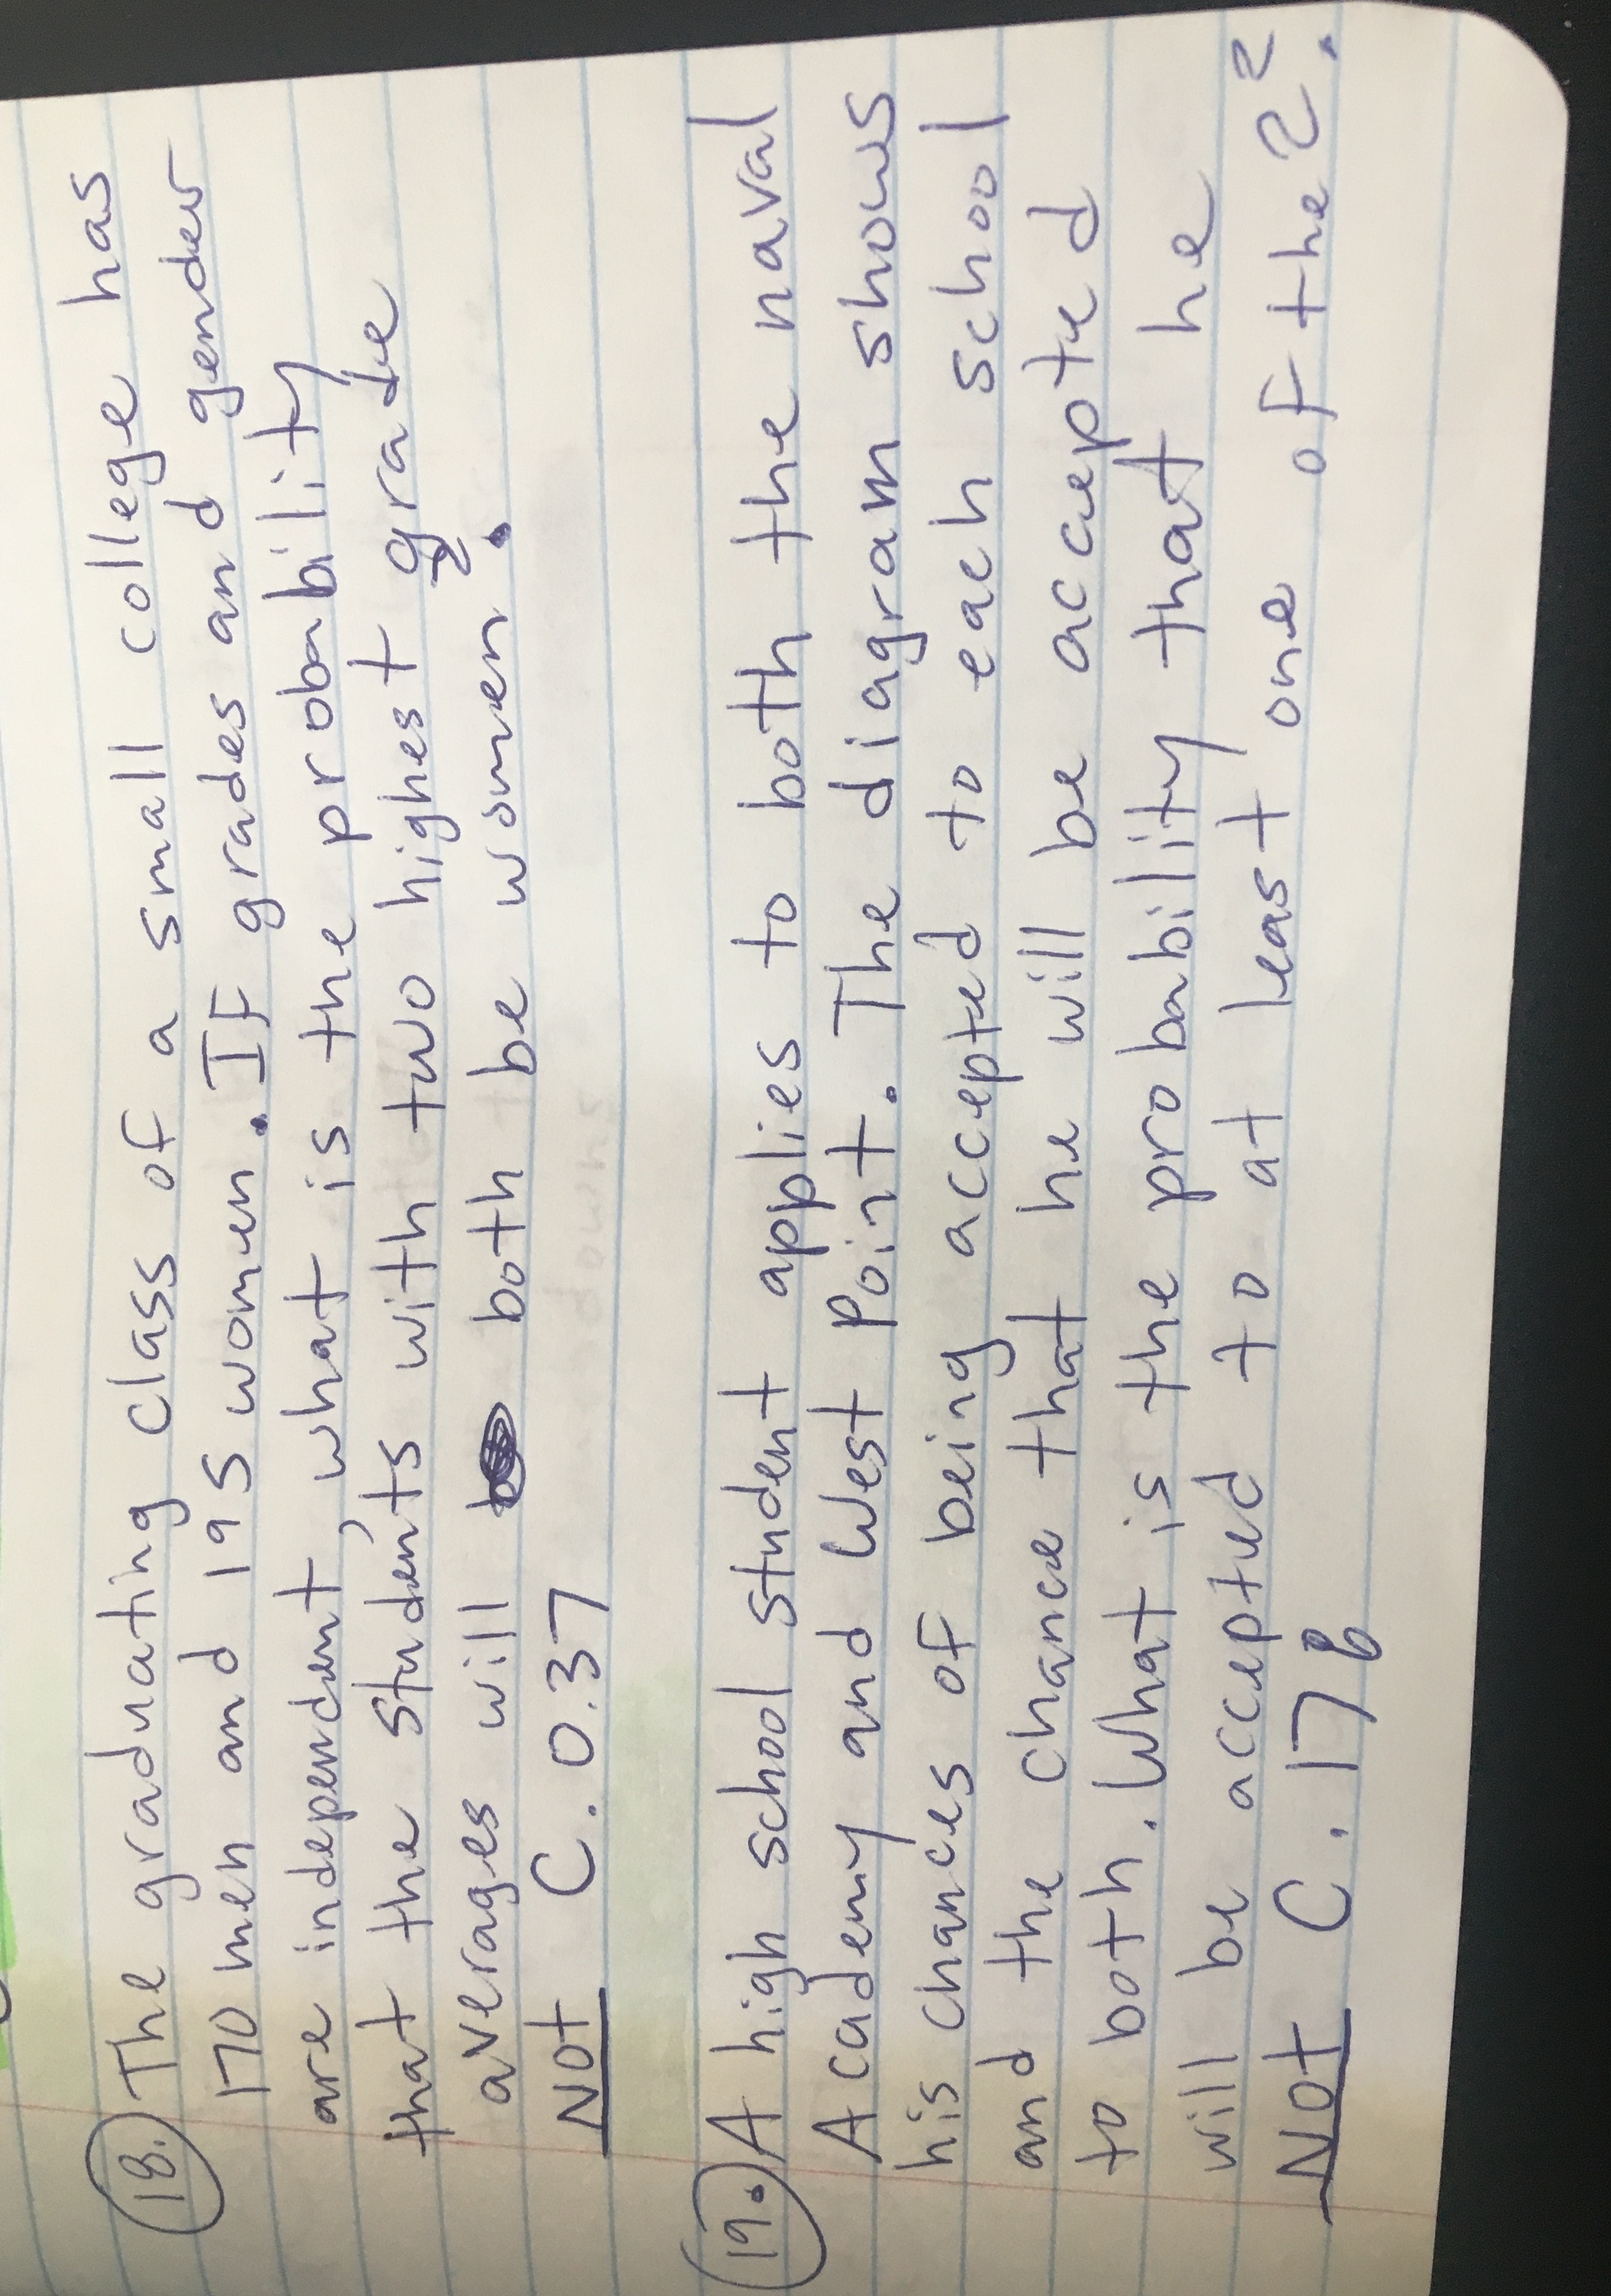 18. The graduating class of a small college has
170 men and 195 women. If grades and gender
are independent, what is the probability
that the students with two highest grade
averages will both be women.
Not C. 0.37
19. A high school student applies to both the naval
Academy and West Point. The diagram shows
his chances of being accepted to each school
and the chance that he will be accepted
to both. What is the probability that he
will be accepted to at least one of the 2?
Not C. 17%